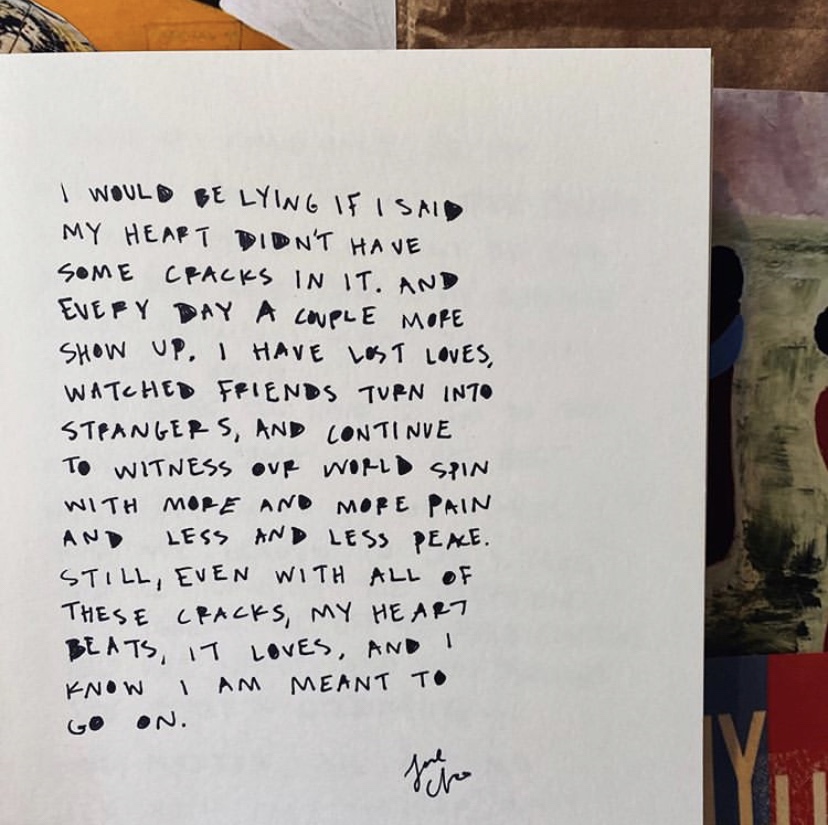 I WOULD BE LYING IF I SAID
MY HEART DIDN'T HAVE
SOME CRACKS IN IT. AND
EVERY DAY A COUPLE MORE
SHOW UP. I HAVE LOST LOVES,
WATCHED FRIENDS TURN INTO
STRANGERS, AND CONTINUE
TO WITNESS OUR WORLD SPIN
WITH MORE AND MORE PAIN
AND LESS AND LESS PEACE.
STILL, EVEN WITH ALL OF
THESE CRACKS, MY HEART
BEATS, IT LOVES, AND I
KNOW I AM MEANT TO
GO ON.